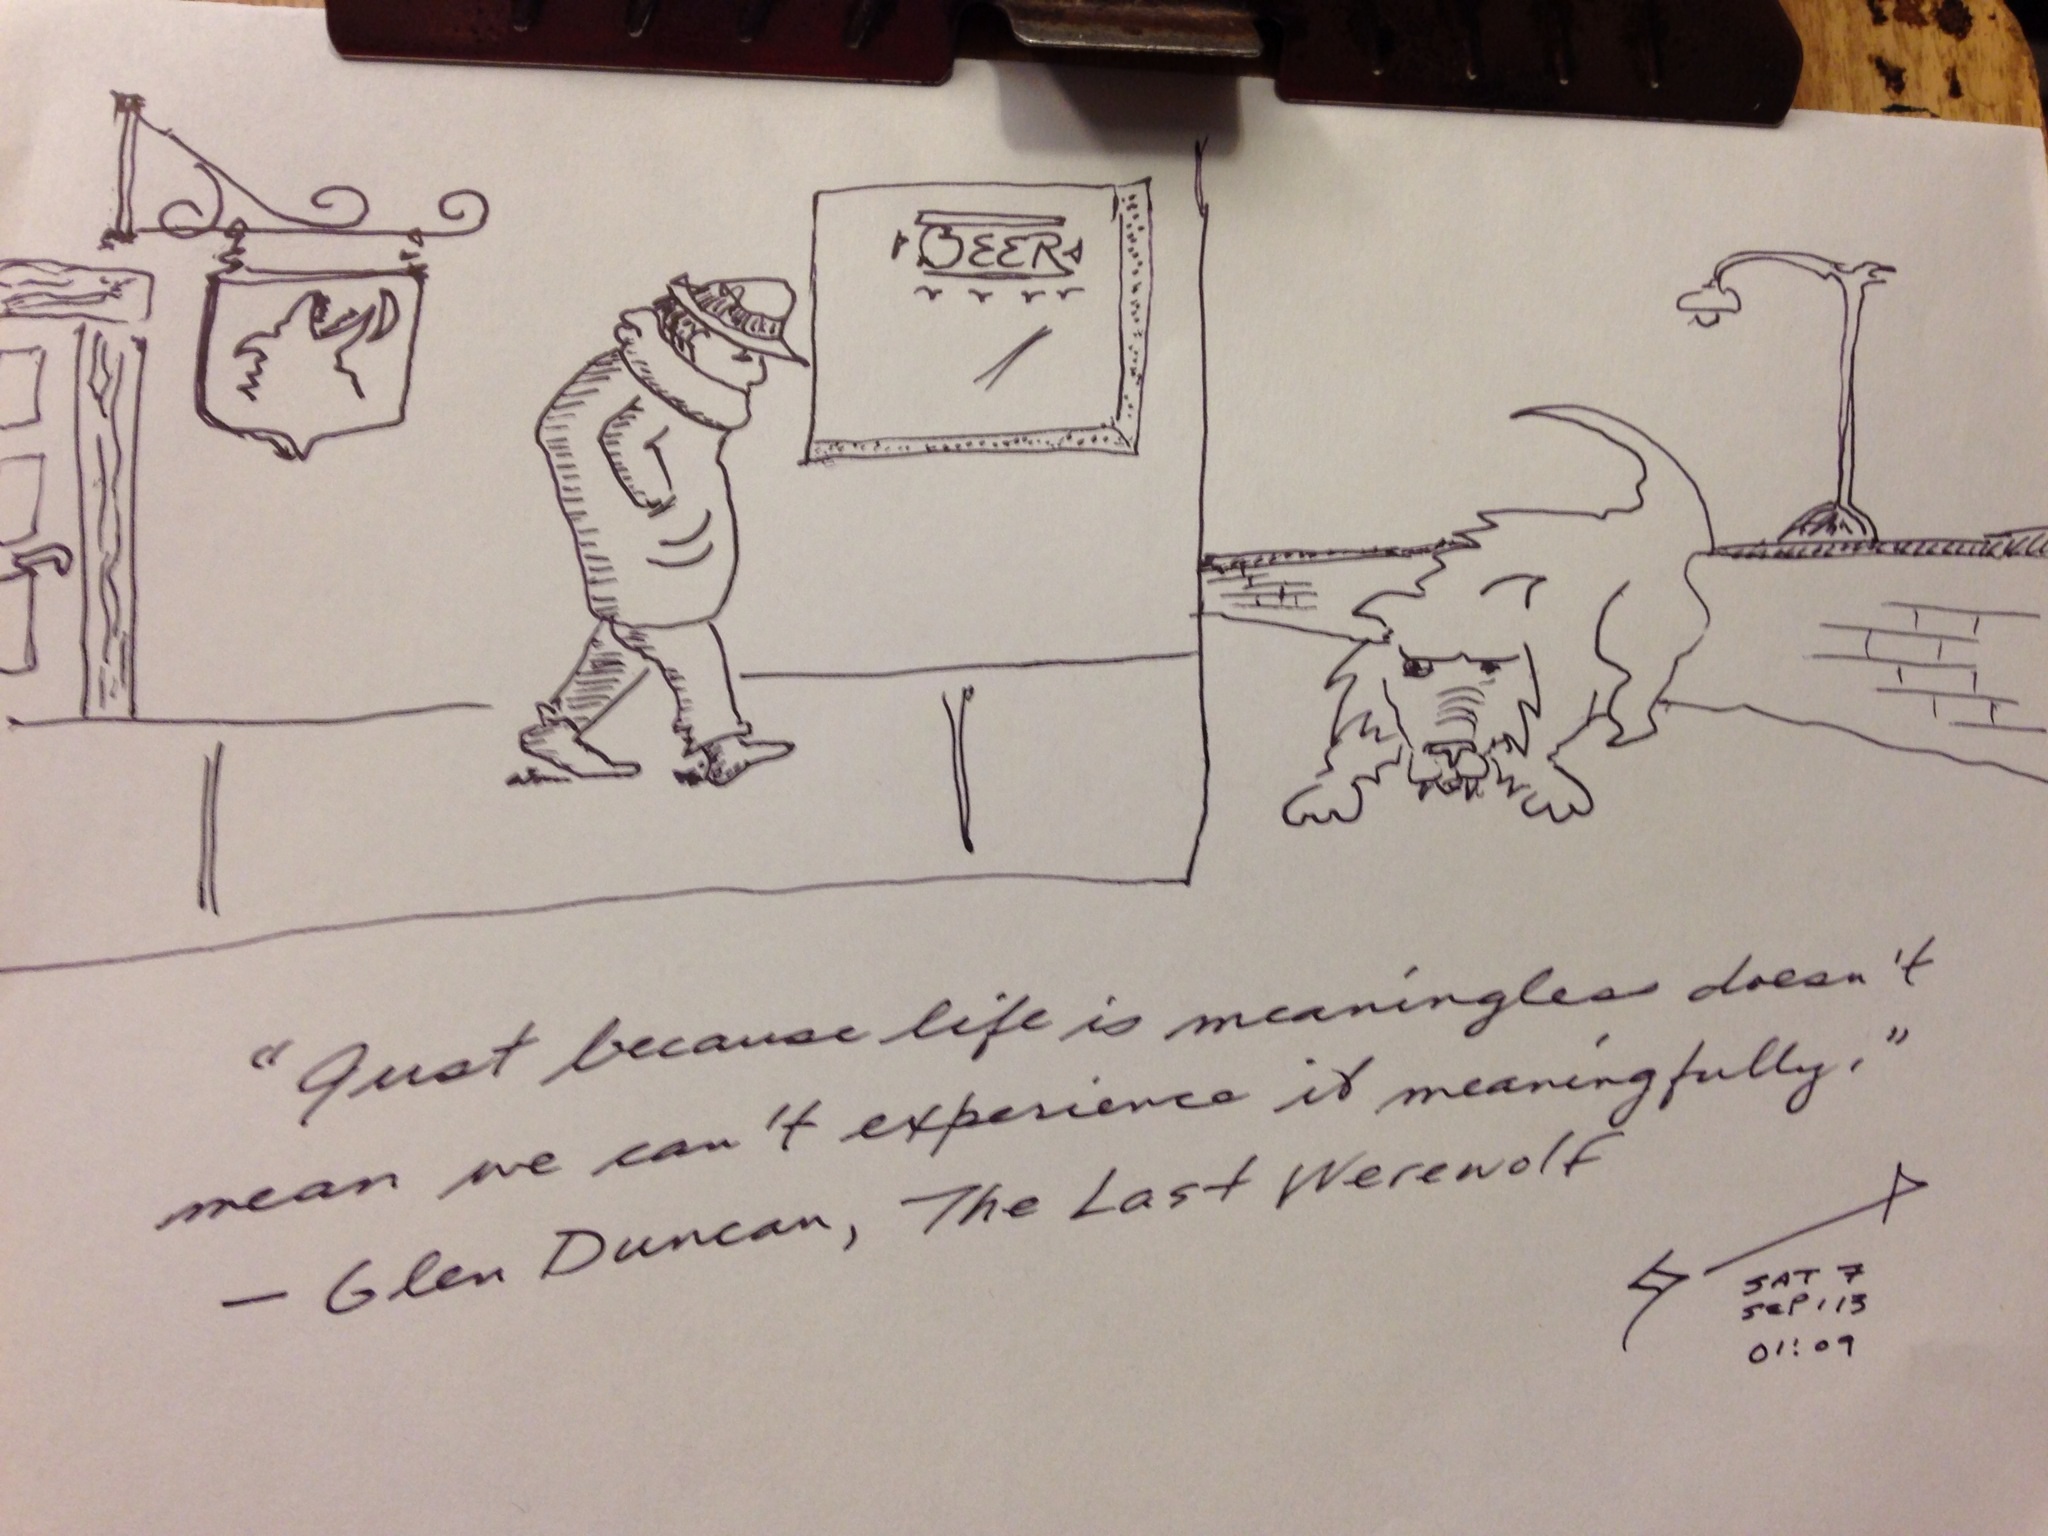 BEER
"Just because life is meaningless doesn't
mean we can't experience it meaningfully."
— Glen Duncan, The Last Werewolf
SAT 7
SEP, 13
01:09